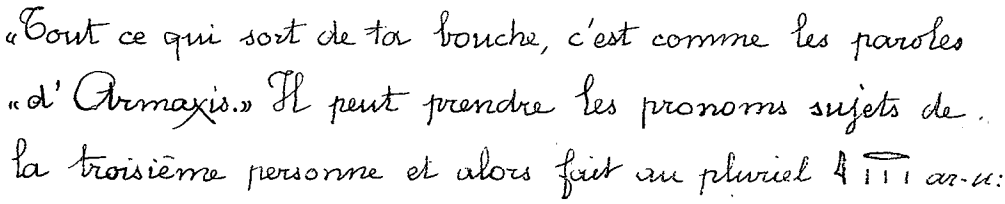 «Tout ce qui sort de ta bouche, c'est comme les paroles
«d'Armaxis.» Il peut prendre les pronoms sujets de
la troisième personne et alors fait au pluriel 𓇋𓂋𓏪 ar-u: